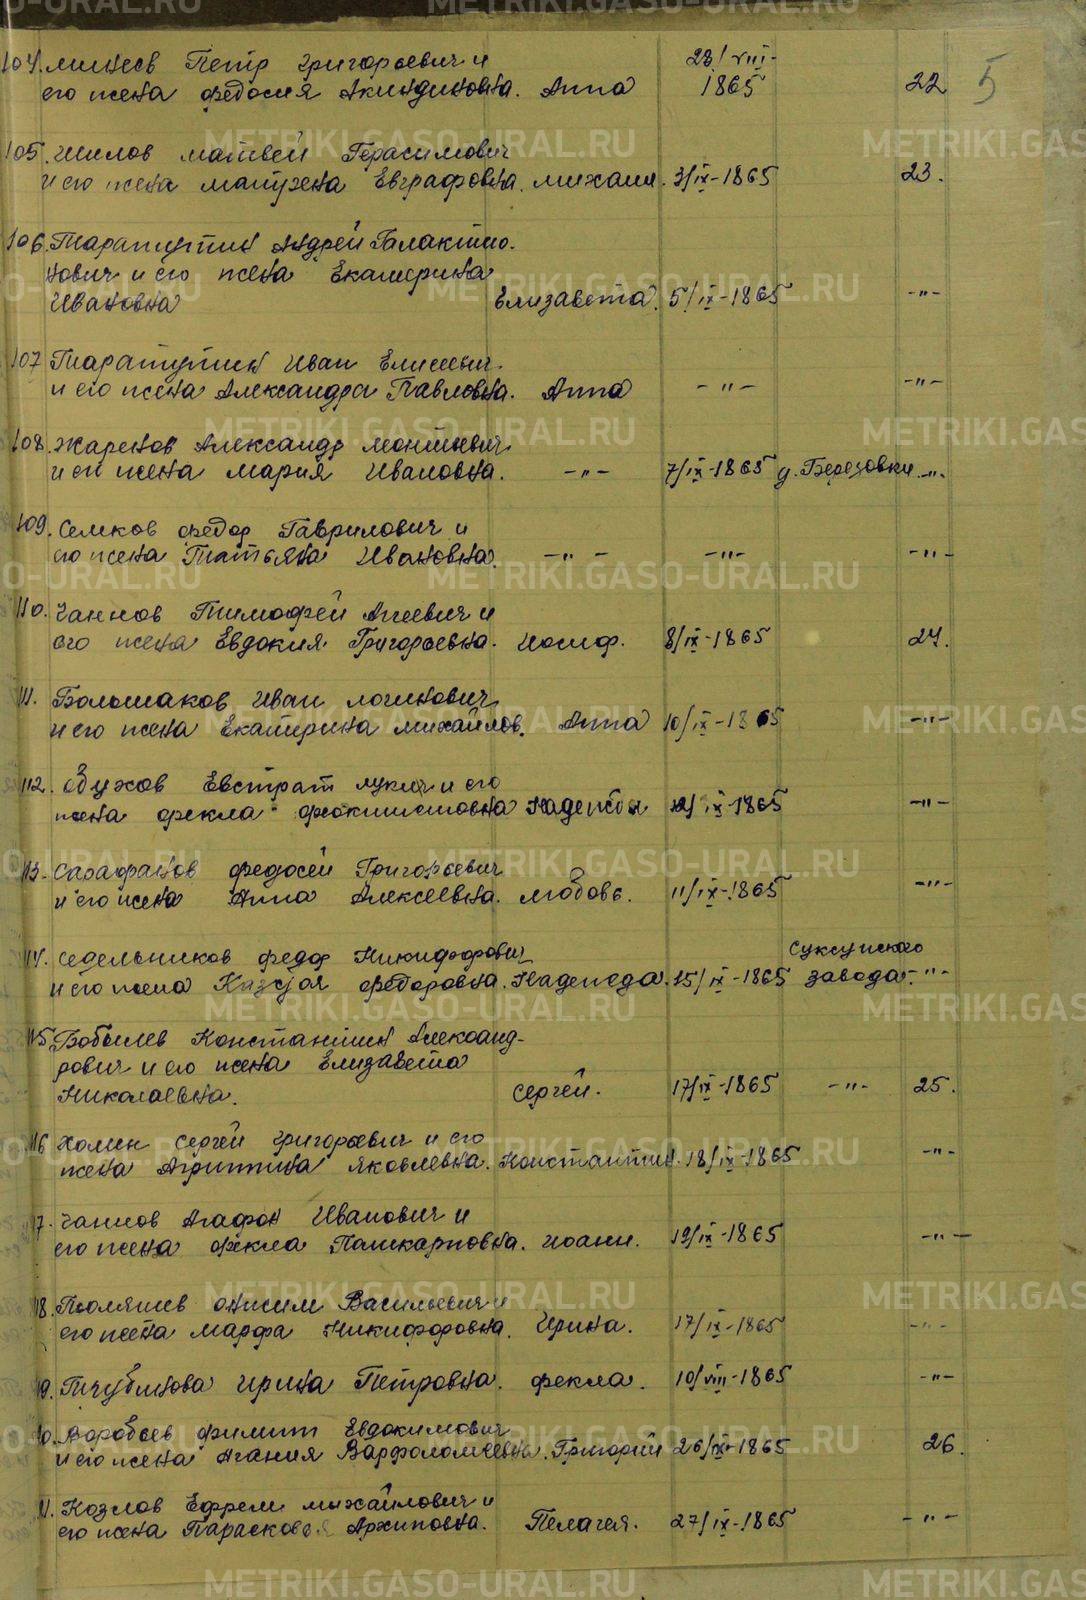 METRIKI.GASO-URAL.RU
5
104. Минеев Петр Григорьевич и 23/VIII-
его жена Федосия Акиндиновна. Анна 1865 22
105. Шилов Матвей Герасимович
и его жена Матрена Евграфовна. Михаил. 3/IX-1865 23.
106. Таратутин Андрей Галактио-
нович и его жена Екатерина
Ивановна Елизавета. 5/IX-1865 -"-
107 Таратутин Иван Елисеевич
и его жена Александра Павловна. Анна -"- -"-
108. Жаренов Александр
и его жена Мария Ивановна. -"- 7/IX-1865 д. Березовки. -"-
109. Семков Федор Гаврилович и
его жена Татьяна Ивановна. -"- -"- -"-
110. Чаннов Тимофей Агеевич и
его жена Евдокия Григорьевна. Иосиф. 8/IX-1865 24.
111. Большаков Иван Логинович
и его жена Екатерина Михайлов. Анна 10/IX-1865 -"-
112. Обухов Евстрат Лукич и его
жена Фекла Феоктистовна Надежда IX-1865 -"-
113. Сарафанов Федосей Григорьевич
и его жена Анна Алексеевна. Любовь. 11/IX-1865 -"-
114. Седельников Федор Никифорович Суксунского
и его жена Федоровна. Надежда. 15/IX-1865 завода. -"-
115. Бобылев Константин Александ-
рович и его жена Елизавета
Николаевна. Сергей. 17/IX-1865 -"- 25.
116 Хомен Сергей Григорьевич и его
жена Агриппина Яковлевна. Константин. 18/IX-1865 -"-
7. Чаннов Агафон Иванович и
его жена Фекла Поликарповна. Иоанн. 19/IX-1865 -"-
18. Онисим Васильевич и
его жена Марфа Никифоровна. Ирина. 17/IX-1865 -"-
9. Ирина Петровна. Фекла. 10/VIII-1865 -"-
0. Воробьев Филипп Евдокимович
и его жена Агания Варфоломеевна. Григорий 26/IX-1865 26.
1. Козлов Ефрем Михайлович и
его жена Парасковья Архиповна. Пелагея. 27/IX-1865 -"-